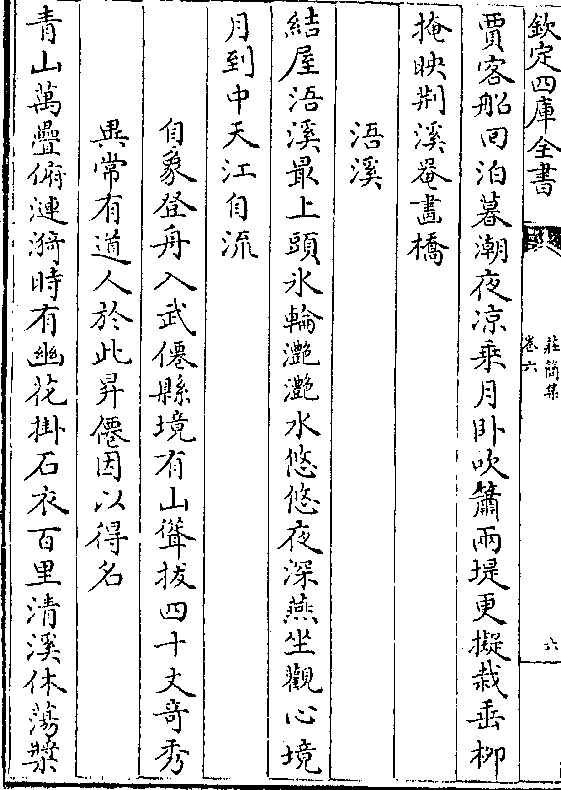 欽定四庫全書
莊簡集
卷六
六
賈客船回泊暮潮夜凉乗月卧吹簫兩堤更擬栽垂柳
掩映荆溪罨畫橋
浯溪
結屋浯溪最上頭氷輪灔灔水悠悠夜深燕坐觀心境
月到中天江自流
自象登舟入武僊縣境有山聳拔四十丈竒秀
異常有道人於此昇僊因以得名
青山萬疊俯漣漪時有幽花掛石衣百里清溪休蕩槳